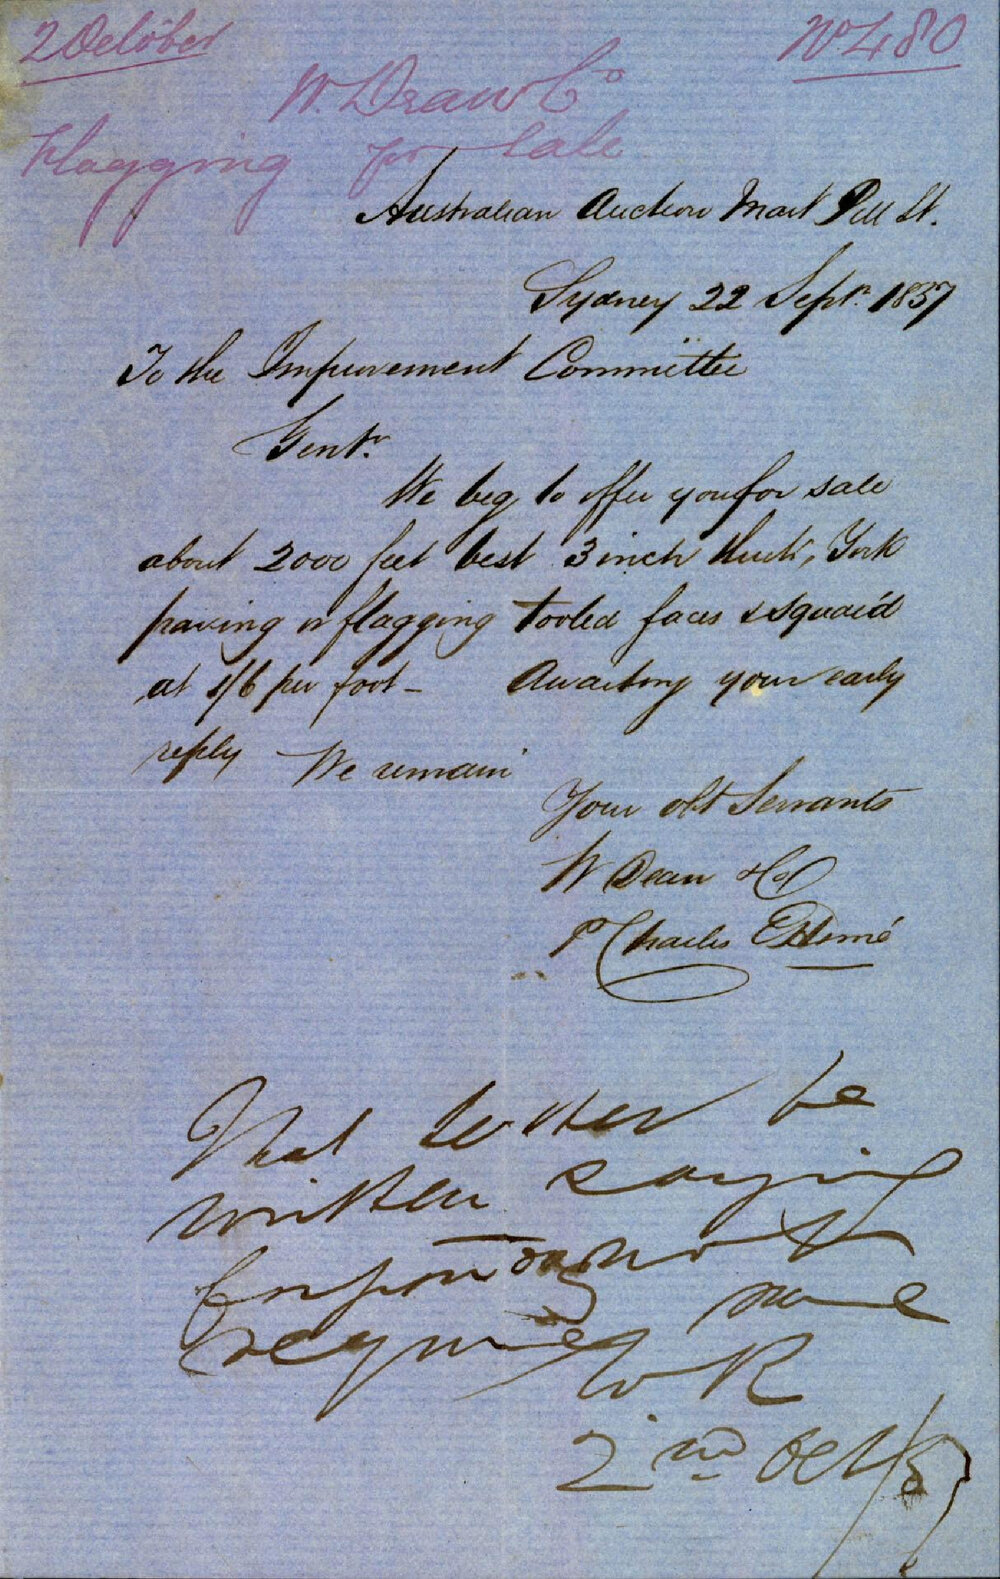 2 October
No 480
W. Dean & Co
Flagging for Sale
Australian Auction Mart Pitt St.
Sydney 22 Septr. 1857
To the Improvement Committee
Gentn.
We beg to offer you for sale
about 2000 feet best 3 inch thick, York
paving or flagging tooled faces & squared
at 1/6 per foot - Awaiting your early
reply We remain
Your obt Servants
W Dean & Co
Pr Charles
That letter be
written saying
Corporation
require none
W R
2nd Oct/57